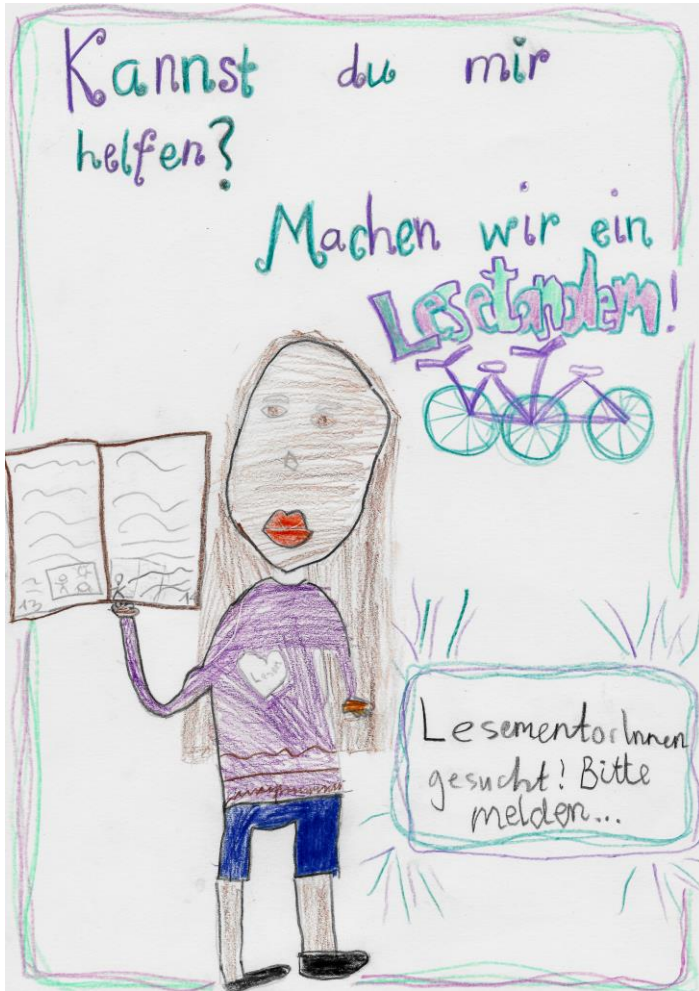 Kannst du mir
helfen?
Machen wir ein
Lesetandem!
13
Lesen
LesementorInnen
gesucht! Bitte
melden...